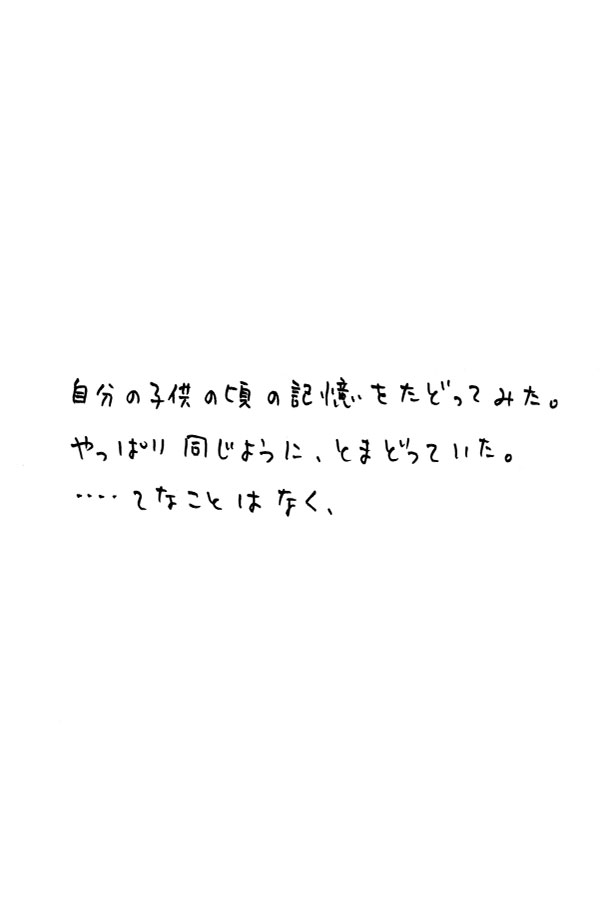 自分の子供の頃の記憶をたどってみた。
やっぱり同じように、とまどっていた。
‥‥てなことはなく、